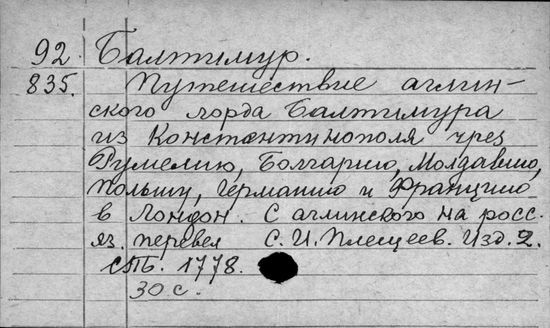 92 Балтимур.
835. Путешествие аглин-
ского лорда Балтимура
из Константинополя чрез
Румелию, Болгарию, Молдавию,
Польшу, Германию и Францию
в Лондон. С аглинского на росс.
яз. перевел С. И. Плещеев. Изд. 2.
СПб. 1778.
30 с.